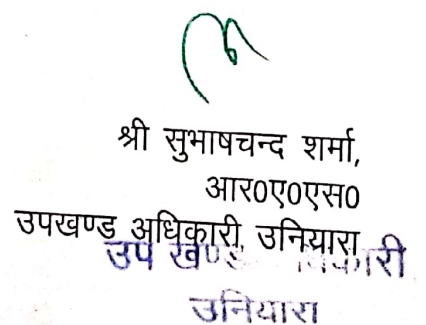 श्री सुभाषचन्द शर्मा,
आर०ए०एस०
उपखण्ड अधिकारी, उनियारा
उप खण्ड
उनियारा